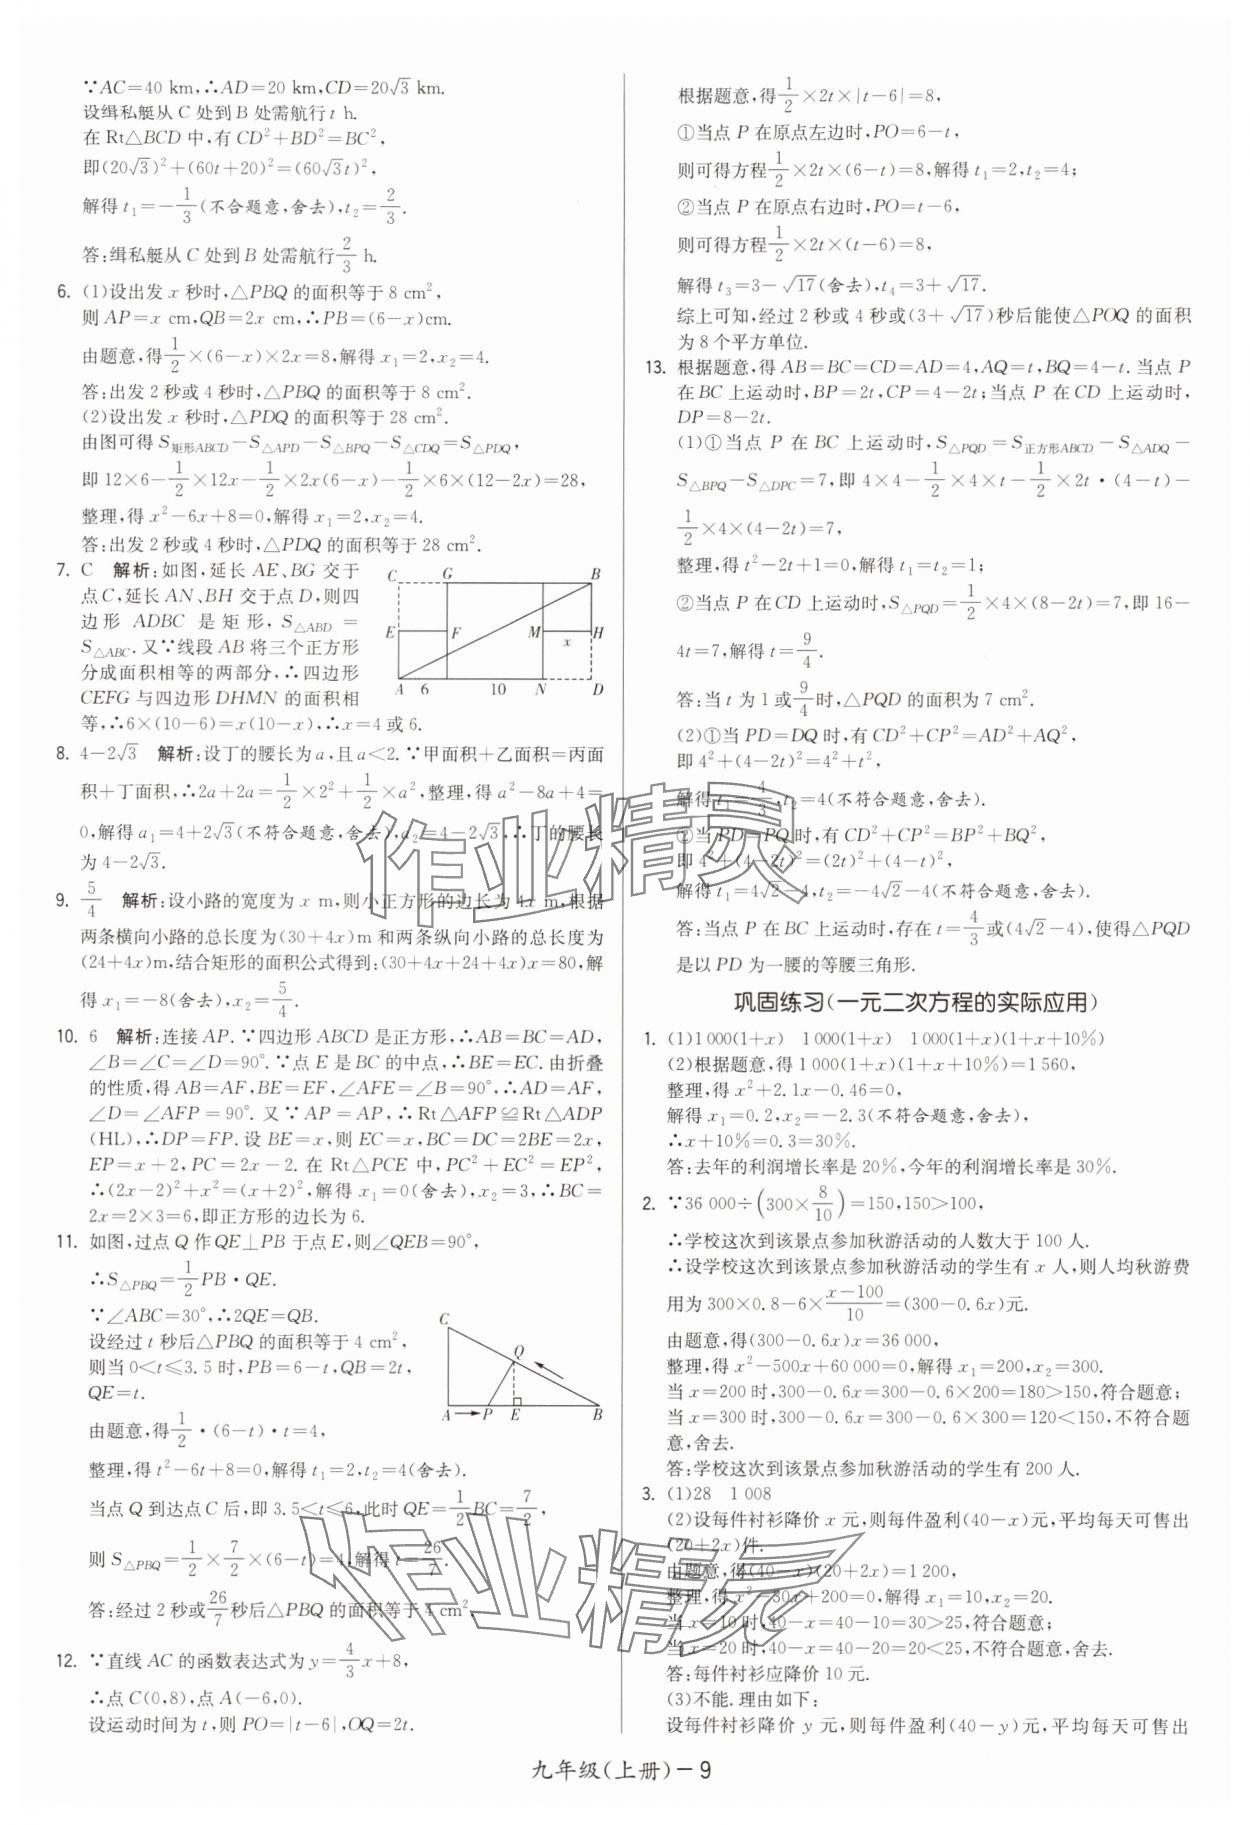 ∵AC=40 km,∴AD=20 km,CD=20√3 km.
设缉私艇从 C 处到 B 处需航行 t h.
在 Rt△BCD 中,有 CD²+BD²=BC²,
即(20√3)²+(60t+20)²=(60√3t)²,
解得 t₁=-1/3(不合题意,舍去),t₂=2/3.
答:缉私艇从 C 处到 B 处需航行2/3 h.
6. (1)设出发 x 秒时,△PBQ 的面积等于 8 cm²,
则 AP=x cm,QB=2x cm,∴PB=(6-x)cm.
由题意,得1/2×(6-x)×2x=8,解得 x₁=2,x₂=4.
答:出发 2 秒或 4 秒时,△PBQ 的面积等于 8 cm².
(2)设出发 x 秒时,△PDQ 的面积等于 28 cm².
由图可得 S矩形ABCD-S△APD-S△BPQ-S△CDQ=S△PDQ,
即 12×6-1/2×12x-1/2×2x(6-x)-1/2×6×(12-2x)=28,
整理,得 x²-6x+8=0,解得 x₁=2,x₂=4.
答:出发 2 秒或 4 秒时,△PDQ 的面积等于 28 cm².
7. C 解析:如图,延长 AE、BG 交于
点 C,延长 AN、BH 交于点 D,则四
边形 ADBC 是矩形,S△ABD=
S△ABC.又∵线段 AB 将三个正方形
分成面积相等的两部分,∴四边形
CEFG 与四边形 DHMN 的面积相
等,∴6×(10-6)=x(10-x),∴x=4 或 6.
C G B
E F M H
x
A 6 10 N D
8. 4-2√3 解析:设丁的腰长为 a,且 a<2.∵甲面积+乙面积=丙面
积+丁面积,∴2a+2a=1/2×2²+1/2×a²,整理,得 a²-8a+4=
0,解得 a₁=4+2√3(不符合题意,舍去),a₂=4-2√3,∴丁的腰长
为 4-2√3.
9. 5/4 解析:设小路的宽度为 x m,则小正方形的边长为 4x m,根据
两条横向小路的总长度为(30+4x)m 和两条纵向小路的总长度为
(24+4x)m,结合矩形的面积公式得到:(30+4x+24+4x)x=80,解
得 x₁=-8(舍去),x₂=5/4.
10. 6 解析:连接 AP.∵四边形 ABCD 是正方形,∴AB=BC=AD,
∠B=∠C=∠D=90°.∵点 E 是 BC 的中点,∴BE=EC.由折叠
的性质,得 AB=AF,BE=EF,∠AFE=∠B=90°,∴AD=AF,
∠D=∠AFP=90°.又∵AP=AP,∴Rt△AFP≌Rt△ADP
(HL),∴DP=FP.设 BE=x,则 EC=x,BC=DC=2BE=2x,
EP=x+2,PC=2x-2.在 Rt△PCE 中,PC²+EC²=EP²,
∴(2x-2)²+x²=(x+2)²,解得 x₁=0(舍去),x₂=3,∴BC=
2x=2×3=6,即正方形的边长为 6.
11. 如图,过点 Q 作 QE⊥PB 于点 E,则∠QEB=90°,
∴S△PBQ=1/2PB·QE.
∵∠ABC=30°,∴2QE=QB.
设经过 t 秒后△PBQ 的面积等于 4 cm²,
则当 0<t≤3.5 时,PB=6-t,QB=2t,
QE=t.
由题意,得1/2·(6-t)·t=4,
整理,得 t²-6t+8=0,解得 t₁=2,t₂=4(舍去).
当点 Q 到达点 C 后,即 3.5<t≤6,此时 QE=1/2BC=7/2,
则 S△PBQ=1/2×7/2×(6-t)=4,解得 t=26/7.
答:经过 2 秒或26/7秒后△PBQ 的面积等于 4 cm².
C
Q
A P E B
12. ∵直线 AC 的函数表达式为 y=4/3x+8,
∴点 C(0,8),点 A(-6,0).
设运动时间为 t,则 PO=|t-6|,OQ=2t.
根据题意,得1/2×2t×|t-6|=8,
①当点 P 在原点左边时,PO=6-t,
则可得方程1/2×2t×(6-t)=8,解得 t₁=2,t₂=4;
②当点 P 在原点右边时,PO=t-6,
则可得方程1/2×2t×(t-6)=8,
解得 t₃=3-√17(舍去),t₄=3+√17.
综上可知,经过 2 秒或 4 秒或(3+√17)秒后能使△POQ 的面积
为 8 个平方单位.
13. 根据题意,得 AB=BC=CD=AD=4,AQ=t,BQ=4-t.当点 P
在 BC 上运动时,BP=2t,CP=4-2t;当点 P 在 CD 上运动时,
DP=8-2t.
(1)①当点 P 在 BC 上运动时,S△PQD=S正方形ABCD-S△ADQ-
S△BPQ-S△DPC=7,即 4×4-1/2×4×t-1/2×2t·(4-t)-
1/2×4×(4-2t)=7,
整理,得 t²-2t+1=0,解得 t₁=t₂=1;
②当点 P 在 CD 上运动时,S△PQD=1/2×4×(8-2t)=7,即 16-
4t=7,解得 t=9/4.
答:当 t 为 1 或9/4时,△PQD 的面积为 7 cm².
(2)①当 PD=DQ 时,有 CD²+CP²=AD²+AQ²,
即 4²+(4-2t)²=4²+t²,
解得 t₁=4/3,t₂=4(不符合题意,舍去).
②当 PD=PQ 时,有 CD²+CP²=BP²+BQ²,
即 4²+(4-2t)²=(2t)²+(4-t)²,
解得 t₁=4√2-4,t₂=-4√2-4(不符合题意,舍去).
答:当点 P 在 BC 上运动时,存在 t=4/3或(4√2-4),使得△PQD
是以 PD 为一腰的等腰三角形.
巩固练习(一元二次方程的实际应用)
1. (1)1 000(1+x) 1 000(1+x) 1 000(1+x)(1+x+10%)
(2)根据题意,得 1 000(1+x)(1+x+10%)=1 560,
整理,得 x²+2.1x-0.46=0,
解得 x₁=0.2,x₂=-2.3(不符合题意,舍去),
∴x+10%=0.3=30%.
答:去年的利润增长率是 20%,今年的利润增长率是 30%.
2. ∵36 000÷(300×8/10)=150,150>100,
∴学校这次到该景点参加秋游活动的人数大于 100 人.
∴设学校这次到该景点参加秋游活动的学生有 x 人,则人均秋游费
用为 300×0.8-6×(x-100)/10=(300-0.6x)元.
由题意,得(300-0.6x)x=36 000,
整理,得 x²-500x+60 000=0,解得 x₁=200,x₂=300.
当 x=200 时,300-0.6x=300-0.6×200=180>150,符合题意;
当 x=300 时,300-0.6x=300-0.6×300=120<150,不符合题
意,舍去.
答:学校这次到该景点参加秋游活动的学生有 200 人.
3. (1)28 1 008
(2)设每件衬衫降价 x 元,则每件盈利(40-x)元,平均每天可售出
(20+2x)件.
由题意,得(40-x)(20+2x)=1 200,
整理,得 x²-30x+200=0,解得 x₁=10,x₂=20.
当 x=10 时,40-x=40-10=30>25,符合题意;
当 x=20 时,40-x=40-20=20<25,不符合题意,舍去.
答:每件衬衫应降价 10 元.
(3)不能.理由如下:
设每件衬衫降价 y 元,则每件盈利(40-y)元,平均每天可售出
作业精灵
作业精灵
九年级(上册)-9